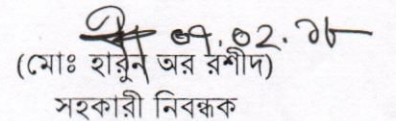 ০৭.০২.১৮
(মোঃ হারুন অর রশীদ)
সহকারী নিবন্ধক